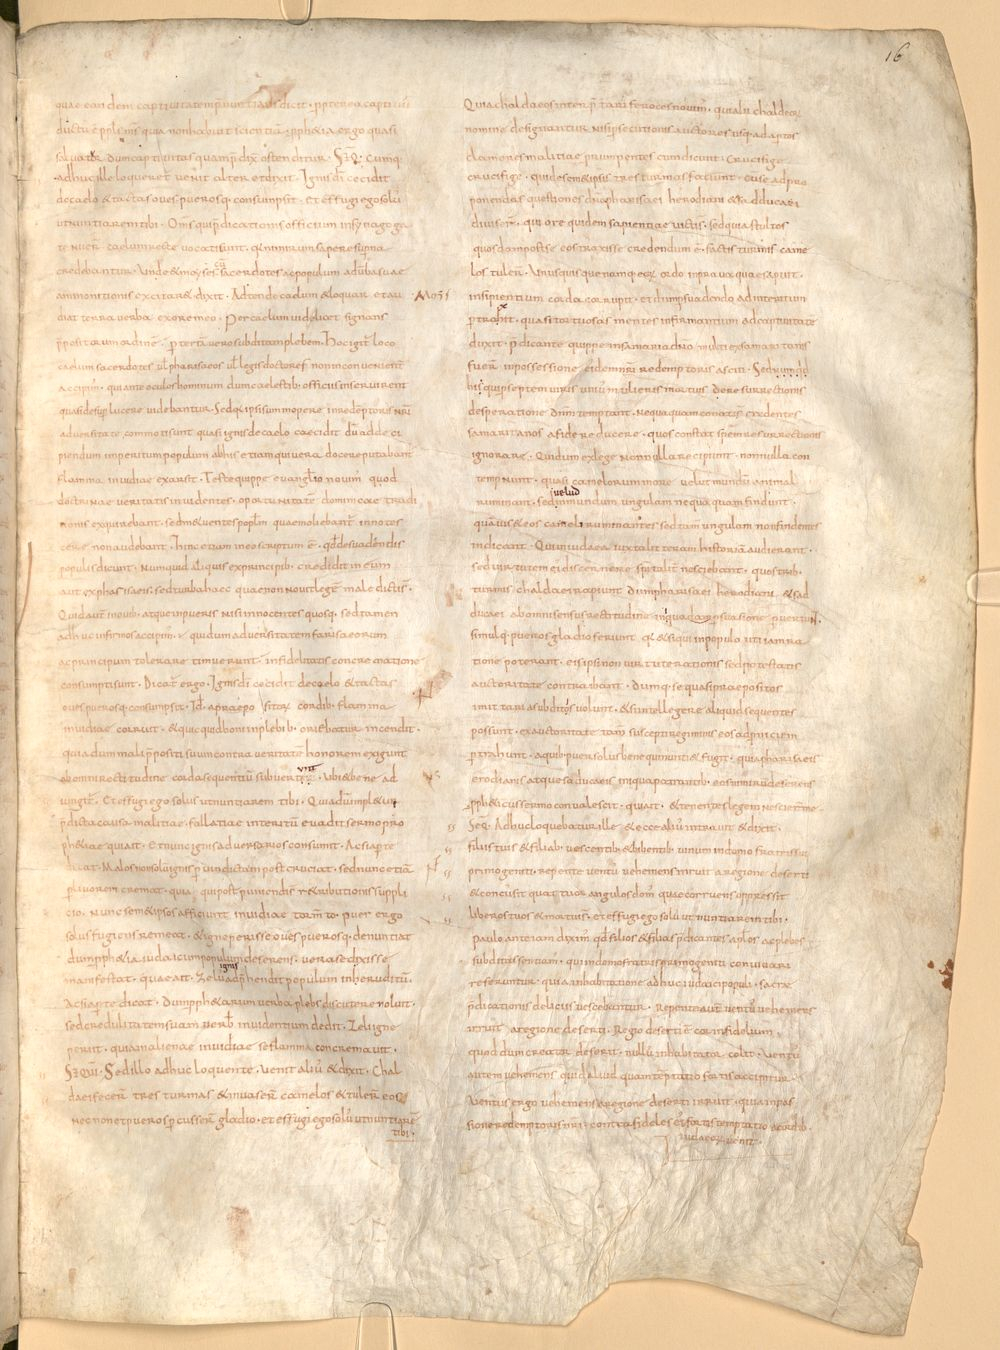 16
quae eandem captivitatem p̄nuntians dicit · ppterea captivus
ductus ē ppls m̄s quia non habuit scientiā · pph&ia ergo quasi
salvator dum captivitas quam p̄dix ostenditur · SEQ · Cumq·
adhuc ille loqueret᷑ venit alter et dixit · Ignis dī cecidit
de caelo & tactas oves puerosq· consumpsit · Et effugi ego solus
ut nuntiarem tibi · Om̄s qui p̄dicationis officium in synagoga
caelum recte vocati sunt · q̄ nimirum sapere superna
credebantur · Unde & moyses cū sacerdotes ac populum
ammonitionis excitar& dixit · Adtende caelum & loquar et au
diat terra verba ex ore meo · Per caelum vidilicet signans
p̄positorum ordinē · p terrā vero subditam plebem · Hoc igit᷑ loco
caelum sacerdotes vl pharisaeos vl legis doctores non inconvenient᷑
accipim᷑ · qui ante oculos hominum dum caelestib· officiis inservirent
quasi desup lucere videbantur · Sed q̄ ipsi summopere in redēptoris nr̄i
adversitate commoti sunt quasi ignis de caelo caecidit dū ad deci
piendum imperitum populum ab his etiam qui vera docere putabant᷑
flamma invidiae exarsit · Teste quippe evangelio novim᷑ quod
doctrinae veritatis invidentes · oportunitatē dominicae tradi
tionis exquirebant · sed m&uentes poplm quae moliebant᷑ innotes
cere non audebant · Hinc etiam in eo scriptum ē · qd desuadendis
populis dicunt · Numquid aliquis ex principib· credidit in eum
aut ex pharisaeis · sed turba haec quae non novit legē maledicti s̄ ·
Quid aut̄ in ovib· atque in pueris nisi innocentes quosq· sed tamen
adhuc infirmos accipim᷑ · qui dum adversitatem farisaeorum
ac principum tolerare timuerunt · infidelitatis concrematione
consumpti sunt · Dicat᷑ ergo · Ignis dī cecidit de caelo & tactas
oves puerosq· consumpsit · Id· a praepositorum cordib· flamma
invidiae corruit · & quicquid boni in plebib· oriebatur incendit ·
quia dum mali p̄positi suum contra veritatē honorem exigunt
ab omni rectitudine corda sequentiū subvertuntur · Ubi & bene ad
ungit᷑ · Et effugi ego solus ut nuntiarem tibi · Quia dum impl&ur
p̄dicta causa malitiae · fallatiae interitū evadit sermo pro
ph&iae qui ait · Et nunc ignis adversarios consumit · Ac si apte
dicat · Malos non solū ignis p vindictam post cruciat · sed nunc etiā
p livorem cremat · quia qui post puniendi s̄ r&ributionis suppli
cio · nunc sem&ipsos afficiunt invidiae tormto · Puer ergo
solus fugiens remeat · & igne perisse oves puerosq· denuntiat
dum pph&ia iudaicum populum deserens · vera se dixisse
manifestat · quae ait · Zelus adp̄hendit populum ineruditū ·
Ac si apte dicat · Dum pph&arum verba plebs discutere noluit ·
sed credulitatem suam verb invidentium dedit · Zeli igne
periit · quia in alienae invidiae se flamma concremavit ·
SEQUI· Sed illo adhuc loquente · venit aliū & dixit · Chal
daei fecer̄ tres turmas & invaser̄ camelos & tuler̄ eos
nec non et pueros p cusser̄ gladio · et effugi ego solus ut nuntiarē
tibi ·
Quia chaldaeos interp̄tari feroces novim᷑ · qui alii chaldeorū
nomine designantur nisi psecutionis auctores usq· ad aptos
clamores malitiae prumpentes cum dicunt · Crucifige
crucifige · qui de sem&ipsis tres turmas faciunt · cum ad pro
ponendas questiones divisi pharisaei herodiani & sadducaei
quos damposse eos traxisse credendum ē · factis turmis came
los tuler̄ · Unusquisque namq· eorum ordo in prava quae sapuit ·
insipientium corda corrupit · et dum psuadendo ad interitum
p trahit · quasi tortuosas mentes infirmantium ad captivitatē
duxit · p̄dicante quippe in samaria dn̄o · multi ex samaritanis
fuer̄ in possessione eidem n̄ri redemptoris asciti ·
his qui p septem viris uniū mulieris mortuis de resurrectionis
desperatione dn̄m temptant · Nequaquam conati s̄ credentes
samaritanos a fide reducere · quos constat spem resurrectionis
ignorare · Qui dum ex lege nonnulla recipiunt · nonnulla con
tempnunt · quasi camelorum more velut mundū animal
ruminant · sed velud inmundum ungulam nequaquam findunt ·
quāvis & eos cameli ruminantes sed tam̄ ungulam non findentes
indicant · Qui in iudaea iuxta litteram historiā audierant ·
sed virtutem ei discernere spiritalit᷑ nesciebant · quos trib·
turmis chaldaei rapiunt · dum pharisaei herodiani & sad
ducaei ab omni sensus rectitudine iniqua psuasione pvertunt ·
simulq· pueros gladio feriunt · q̄ & si qui in populo uti iam ra
tione poterant · eis ipsi non virtute rationis sed potestatis
auctoritate contraibant · Dumq· se quasi praepositos
imitari a subditis volunt · & si intellegere aliquid sequentes
possunt · ex auctoritate tam̄ suscepti regiminis eos ad pniciem
p trahunt · a quib· puer solus bene quim nuntiet fugit · quia pharisaeis
erodianis atque saducaeis iniqua patrantib· eos nimirū deserens
SEQ· Adhuc loquebatur ille & ecce aliū intravit & dixit ·
filiis tuis & filiab· vescentib· & bibentib· vinum in domo fratris sui
primogeniti · repente ventus vehemens irruit a regione deserti
& concusit quattuor angulos dom᷑ · quae corruens oppressit
liberos tuos & mortui s̄ · et effugi ego solū ut nuntiarem tibi ·
Paulo ante iam dixim᷑ qd filios & filias p̄dicantes aplos ac plebes
subditas sentiam · qui in domo fratris primogeniti convivari
referuntur · quia in habitatione adhuc iudaici populi · sacrae
p̄dicationis deliciis vescebantur · Repente aut̄ ventū vehemens
irruit a regione deserti · Regio deserti ē cor infidelium ·
quod dum creator deserit · nullū inhabitator colit · Ventū
autem vehemens quid aliud quam tēptatio fortis accipitur ·
Ventus ergo vehemens a regione deserti irruit · quia in pas
sione redemptoris n̄ri · contra fideles ei fortis temptatio a cordib·
iudaeor̄ venit ·